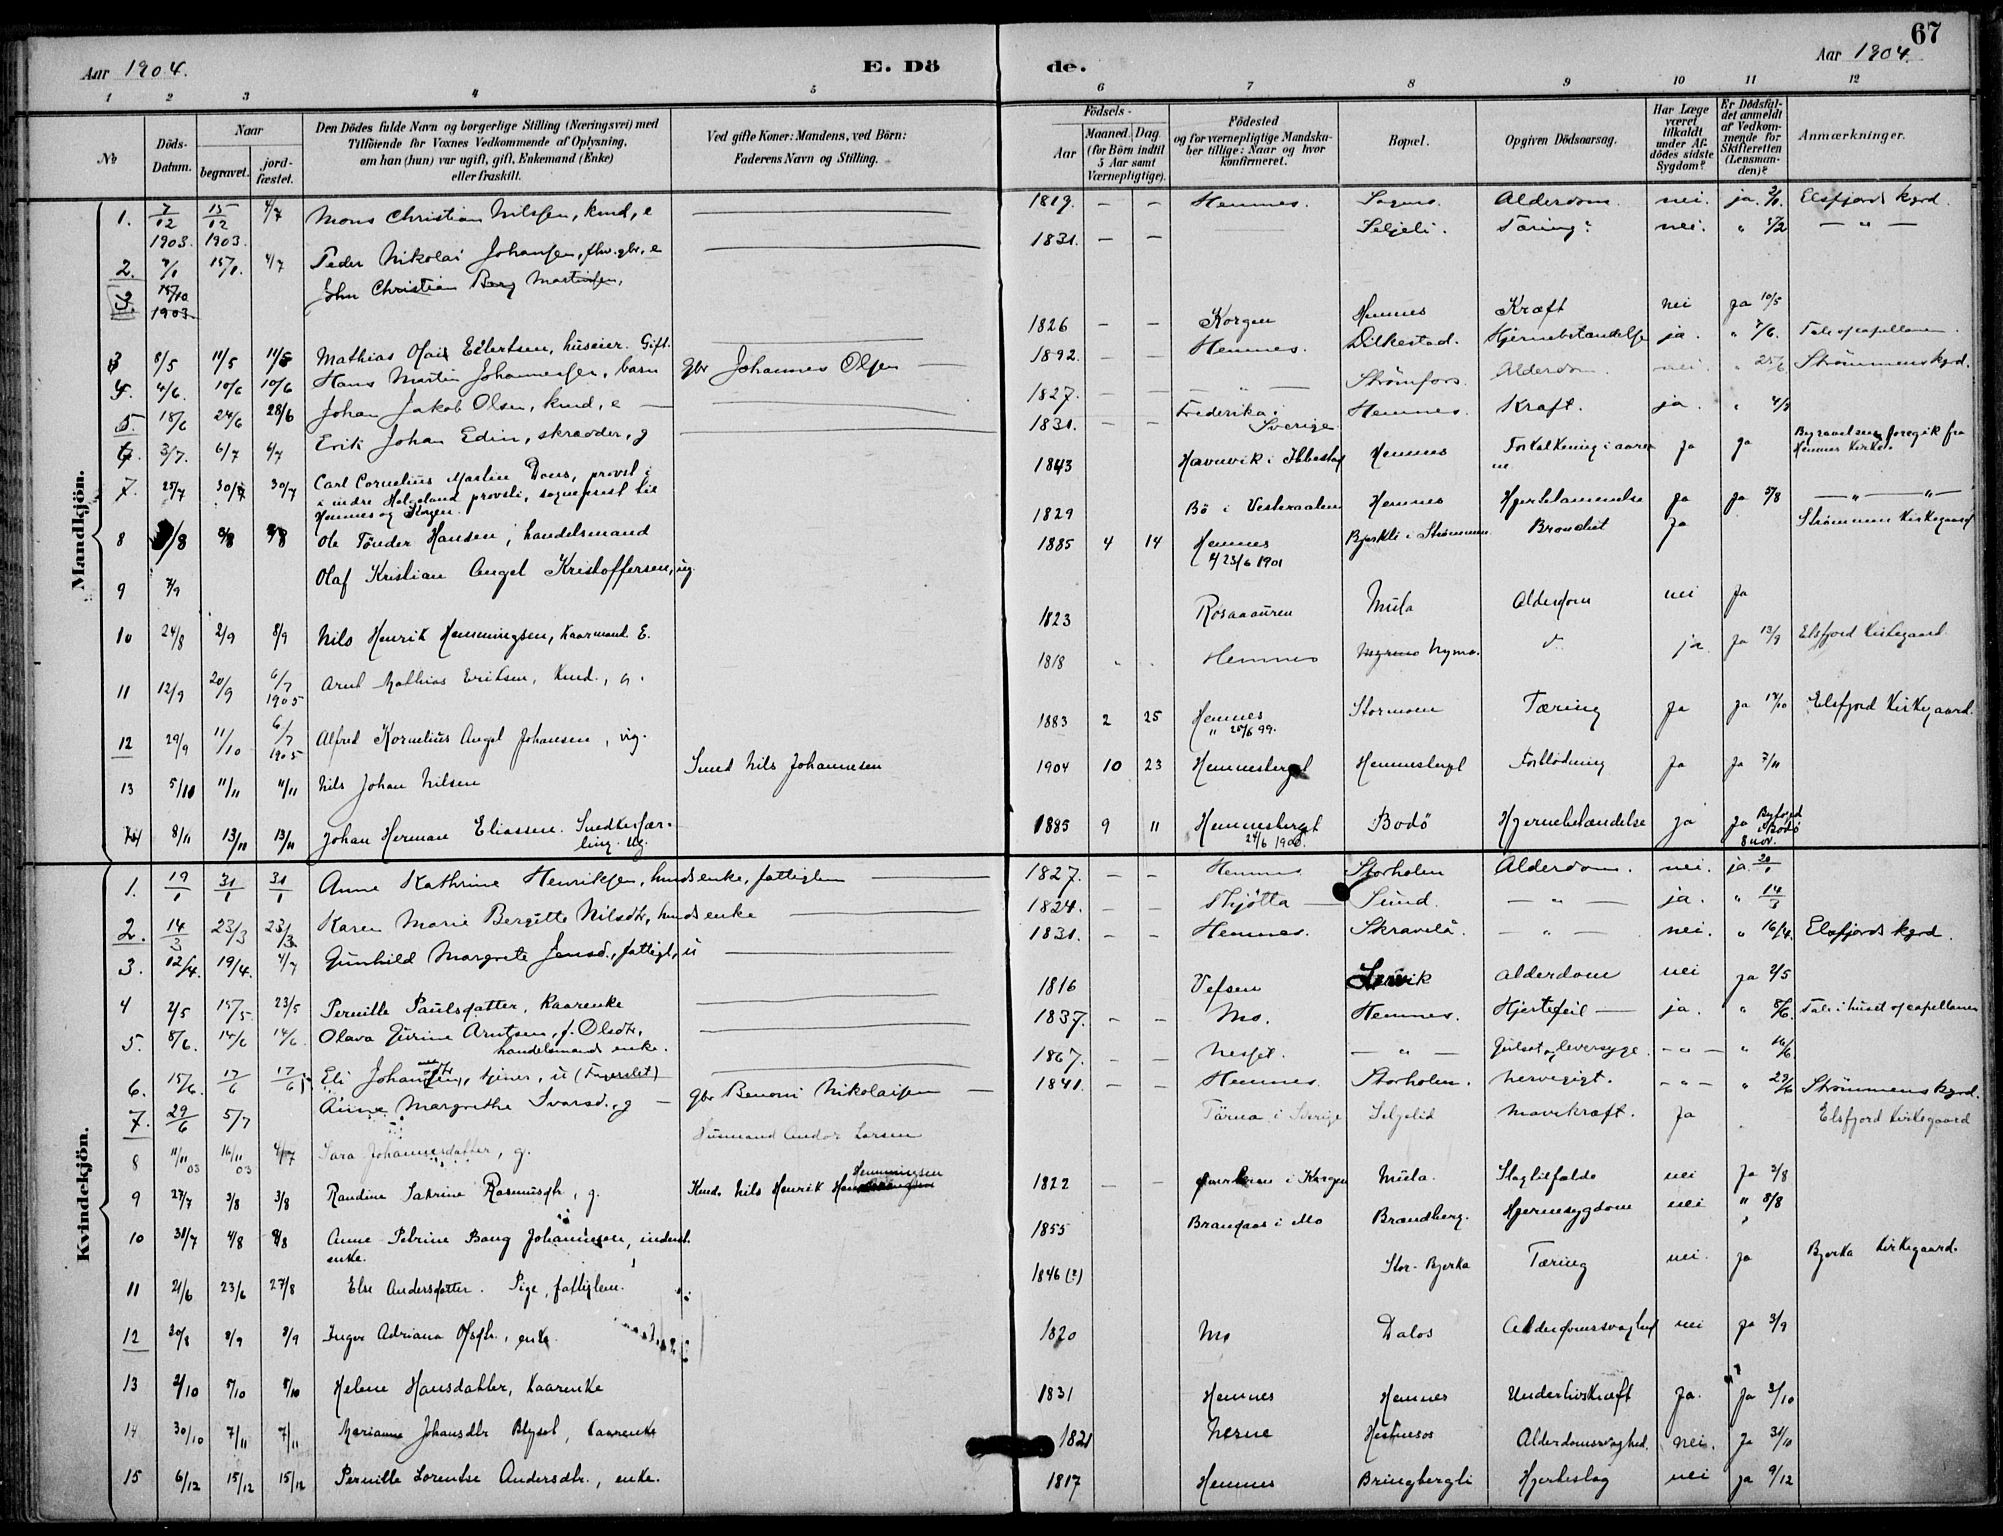 67
Aar 1904. E. Dö de. Aar 1904.
1 2 3 4 5 6 7 8 9 10 11 12
No
Döds-Datum.
Naar
begravet.
jord-fæstet.
Den Dödes fulde Navn og borgerlige Stilling (Næringsvei) med
Tilföiende for Voxnes Vedkommende af Oplysning,
om han (hun) var ugift, gift, Enkemand (Enke)
eller fraskilt.
Ved gifte Koner: Mandens, ved Börn:
Faderens Navn og Stilling.
Födsels-
Aar
Maaned. Dag
(for Börn indtil
5 Aar samt
Værnepligtige).
Födested
og for værnepligtige Mandska-
ber tillige: Naar og hvor
konfirmeret.
Bopæl.
Opgiven Dödsaarsag.
Har Læge
været
tilkaldt
under Af-
dödes sidste
Sygdom?
Er Dödsfal-
det anmeldt
af Vedkom-
mende for
Skifteretten
(Lensman-
den)?
Anmærkninger.
Mandkjön.
1. 7/12 1903. 15/12 1903. 4/7 Mons Christian Nilssen, kmd, e 1819. — — Hemnes. Alderdom. nei. ja. Elsfjords kgrd.
2. 15/1. 4/7 Peder Nikolai Johansen, e 1831. — — Seljeli. Tæring? nei. " 5/2 — " —
3. 15/10 1903 John Christian Berg Martinsen,
3 8/5 11/5 11/5 Mathias Olai Eilertsen, huseier. Gift. 1826 — — Korgen Hemnes Kræft nei ja 10/5
4. 4/6. 10/6 10/6 Hans Martin Johannessen, barn gbr Johannes Olsen 1892. — — Hemnes. Hjernebetændelse ja. " 7/6.
5. 18/6 24/6 28/6 Johan Jakob Olsen, kmd, e 1827. — — — " — Strømfors. Alderdom. nei. " 25/6 Strømmens kgrd.
6. 3/7. 6/7 6/7 Erik Johan Edin, skrædder, g 1831. — — Frederika i Sverige Hemnes. Kraft. ja. "
7. 25/7 30/7 30/7 Carl Cornelius Martin Dons, provst i
indre Helgeland provsti, sogneprest til
Hemnes og Korgen. 1843 Havnvik i Ibbestad Hemnes Forkalkning i aarerne ja ja Begravelsen foregik fra Hemnes Kirke.
8 /8 8/8 8/8 Ole Tönder Hansen, handelsmand 1829 Bö i Vesteraalen Hemnes Hjertelammelse ja ja 5/8 — " — " —
9 7/9 Olaf Kristian Angel Kristoffersen, ug. 1885 4 14 Hemnes 23/6 1901 Bjerkli i Strømmen Bronchit ja Strømmen Kirkegaard
10 24/8 2/9 8/9 Nils Henrik Hemmingsen, Kaarmand. E. 1823 Rösaaauren Mula Alderdom nei ja
11 12/9 20/9 6/7 1905 Arnt Mathias Eriksen, Kmd., 1818 " " Hemnes ja ja 13/9 Elsfjord Kirkegaard.
12 29/9 11/10 6/7 1905 Alfred Kornelius Angel Johansen, ug. 1883 2 25 Hemnes " 25/6 99. Stormoen Tæring ja ja 14/10 Elsfjord Kirkegaard.
13 5/11 11/11 11/11 Nils Johan Nilsen Smed Nils Johannesen 1904 10 23 Hemnesberget Hemnesberget Forblödning ja ja 7/11
14 8/11 13/11 13/11 Johan Herman Eliassen. Snedkerlær-
ling. Ug. 1885 9 11 Hemnesberget 24/6 1900. Bodö Hjernebetændelse ja ja Byfoged i Bodö 8 nov.
Kvindekjön.
1. 19/1 31/1 31/1 Anne Kathrine Henriksen, kmdsenke, fattiglem 1827. — — Hemnes Storholen Alderdom. nei. ja.
2. 14/3 23/3 23/3 Karen Marie Bergitte Nilsdtr, kmdsenke 1824. — — Thjötta Sund. — " — ja. " 14/3
3. 12/4. 19/4. 4/7 Gunhild Margrete Jensd., fattigl., u 1831. — — Hemnes. Skravelå — " — nei. " 16/4. Elsfjords kgrd.
4 2/5 15/5. 23/5 Pernille Paulsdatter, Kaarenke 1816 Vefsen Alderdom nei ja 2/5
5. 8/6. 14/6 14/6 Olava Jørine Arntsen, f. Olsdtr,
handelsmands enke. 1837. — — Mo. Hemnes. Hjertefeil ja. " 8/6. Tale i huset af capellanen
6. 15/6. 17/6 17/6 Eli Johansen, tjener, u (Fagerslet) 1867. — — Nesset. — " — Gulsot og leversyge. — " — " 16/6
7. 29/6 5/7 Anne Margrethe Ivarsd., g gbr Benoni Nikolaisen 1841. — — Hemnes. Storholen. Nervegigt. — " — " 29/6 Strømmens kgrd.
8 11/11 03 16/11 03 4/7 Sara Johannesdatter, g. Husmand Andor Larsen Tärna i Sverige Seljelid Mavekræft. ja " Elsfjord Kirkegaard
9 27/7 3/8 3/8 Randine Katrine Rasmusdtr, g. Kmd. Nils Henrik Hemmingsen 1822 — — i Korgen Mula. Slagtilfælde nei ja 2/8
10 31/7 4/8 8/8 Anne Petrine Bang Johannesen, inderst.
enke. 1855 Brandaas i Mo Brændberg. Hjernesygdom nei " 8/8
11 21/6 23/6 27/8 Else Andersdatter. Pige, fattiglem. 1846 (?) Stor-Bjerka Tæring nei. ja Bjerka Kirkegaard.
12 30/8 8/9 8/9 Inger Adriana Olsdtr., enke 1820 Mo Dalos Alderdomsvaghed nei ja 3/9
13 2/10 8/10 8/10 Helene Hansdatter, Kaarenke 1831 Hemnes Hemnes Underlivskræft ja. ja 3/10
14 30/10 7/11 7/11 Marianne Johansdtr Blyset, Kaarenke 1821 Nesne Hestnesos Alderdomssvaghed. nei. ja 31/10
15 6/12 15/12 15/12 Pernille Lorentse Andersdtr., enke. 1817 Hemnes Bringbergli Hjerteslag nei ja 9/12